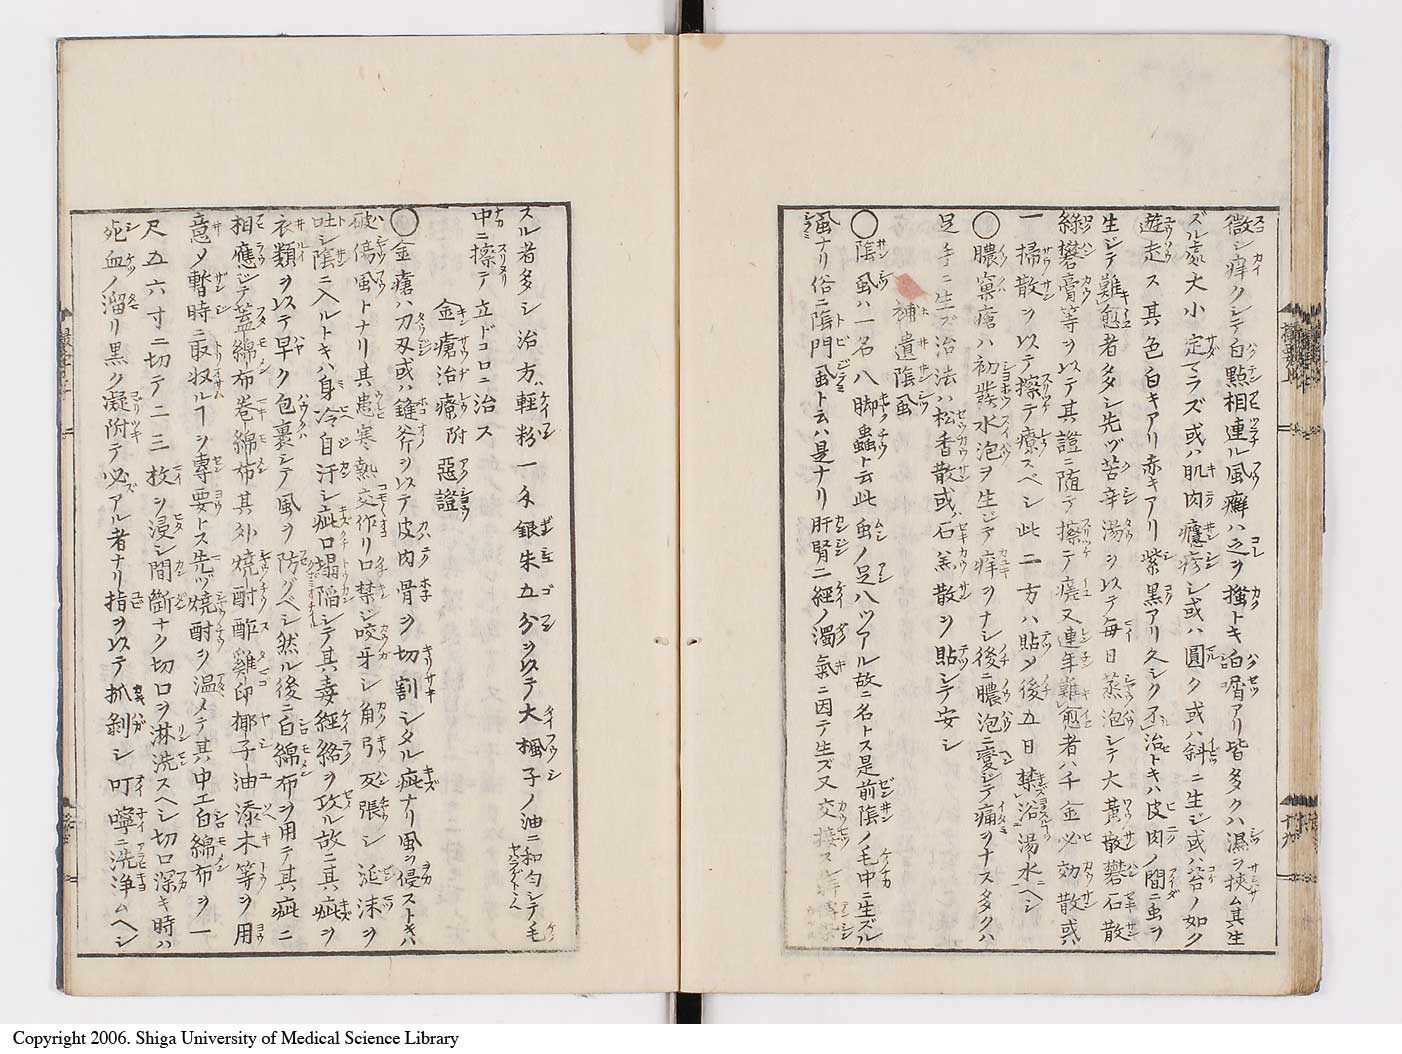 微シ痒クシテ白點相連ル風癬ハ之ヲ搔トキ白屑アリ皆多クハ濕ヲ挾ム其生
ズル處大小定ラズ或ハ肌肉癮疹シ或ハ圓ク或ハ斜ニ生ジ或ハ苔ノ如ク
遊走ス其色白キアリ赤キアリ紫黒アリ久シク不治トキハ皮肉ノ間ニ虫ヲ
生ジテ難愈者多シ先ヅ苦辛湯ヲ以テ毎日蒸泡シテ大黄散礬石散
綠礬膏等ヲ以テ其證ニ随テ擦テ痊又連年難愈者ハ千金必効散或ハ
一掃散ヲ以テ擦テ療スベシ此二方ハ貼メ後五日禁浴湯水ヘシ
〇膿窠瘡ハ初發水泡ヲ生ジテ痒ヲナシ後ニ膿泡ニ變ジテ痛ヲナス多クハ
足手ニ生ズ治法ハ松香散或石羔散ヲ貼シテ安シ
補遺陰風
〇陰風ハ一名八脚蟲ト云此虫ノ足八ツアル故ニ名トス是前陰ノ毛中ニ生ズル
風ナリ俗ニ陰門虱ト云ハ是ナリ肝腎二經ノ濁氣ニ因テ生ズ又交接ス
スル者多シ治方ハ輕粉一匁銀朱五分ヲ以テ大楓子ノ油ニ和匀シテ毛
中ニ擦テ立ドコロニ治ス
金瘡治療附惡證
〇金瘡ハ刀刃或ハ鋒斧ヲ以テ皮肉骨ヲ切割シタル疵ナリ風ヲ侵ストキハ
破傷風トナリ其患寒熱交作リ口禁シ咬牙シ角弓反張シ涎沫ヲ
吐シ陰ニ入ルトキハ身冷自汗シ疵口塌陷シテ其毒經絡ヲ攻ル故ニ其疵ヲ
衣類ヲ以テ早ク包裹シテ風ヲ防グベシ然ル後ニ白綿布ヲ用テ其疵ニ
相應ジテ蓋綿布巻綿布其外燒酎酢雞卵椰子油添木等ヲ用
意メ暫時ニ取収ルヿヲ專要トス先ヅ燒酎ヲ温メテ其中エ白綿布ヲ一
尺五六寸ニ切テ二三枚ヲ浸シ間斷ナク切口ヲ淋洗スヘシ切口深キ時ハ
死血ノ溜リ黒ク凝附テ必アル者ナリ指ヲ以テ抓剝シ叮嚀ニ洗浄ムヘシ
Copyright 2006. Shiga University of Medical Science Library